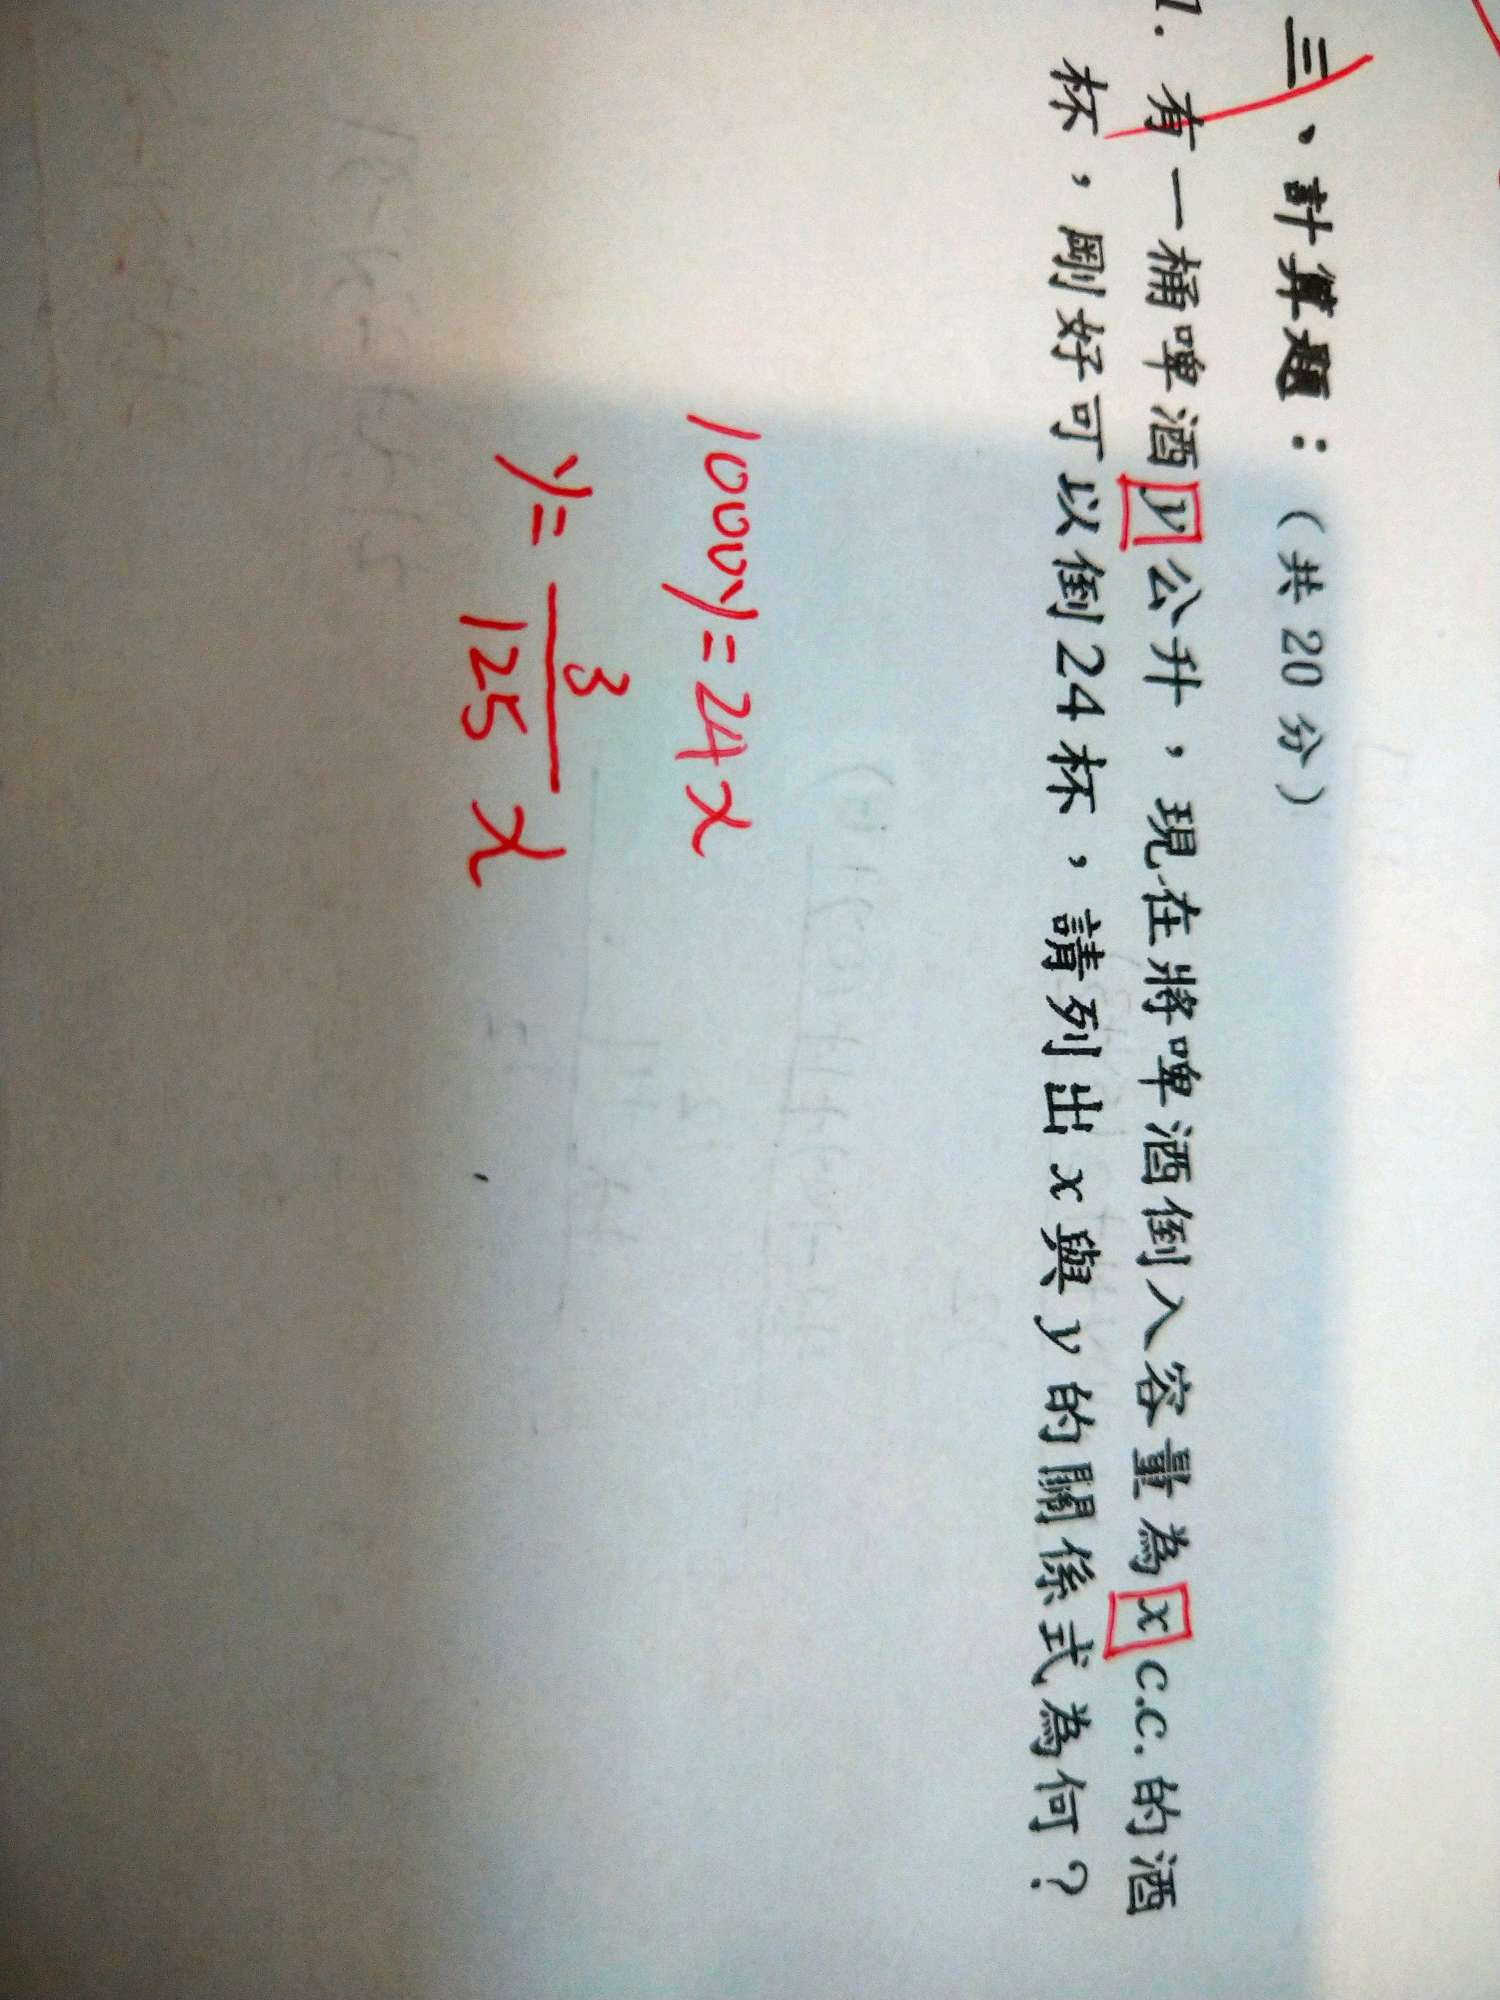 三、計算題：（共20分）
1. 有一桶啤酒y公升，現在將啤酒倒入容量為x c.c.的酒
杯，剛好可以倒24杯，請列出x與y的關係式為何？
1000y=24x
y=3/125 x